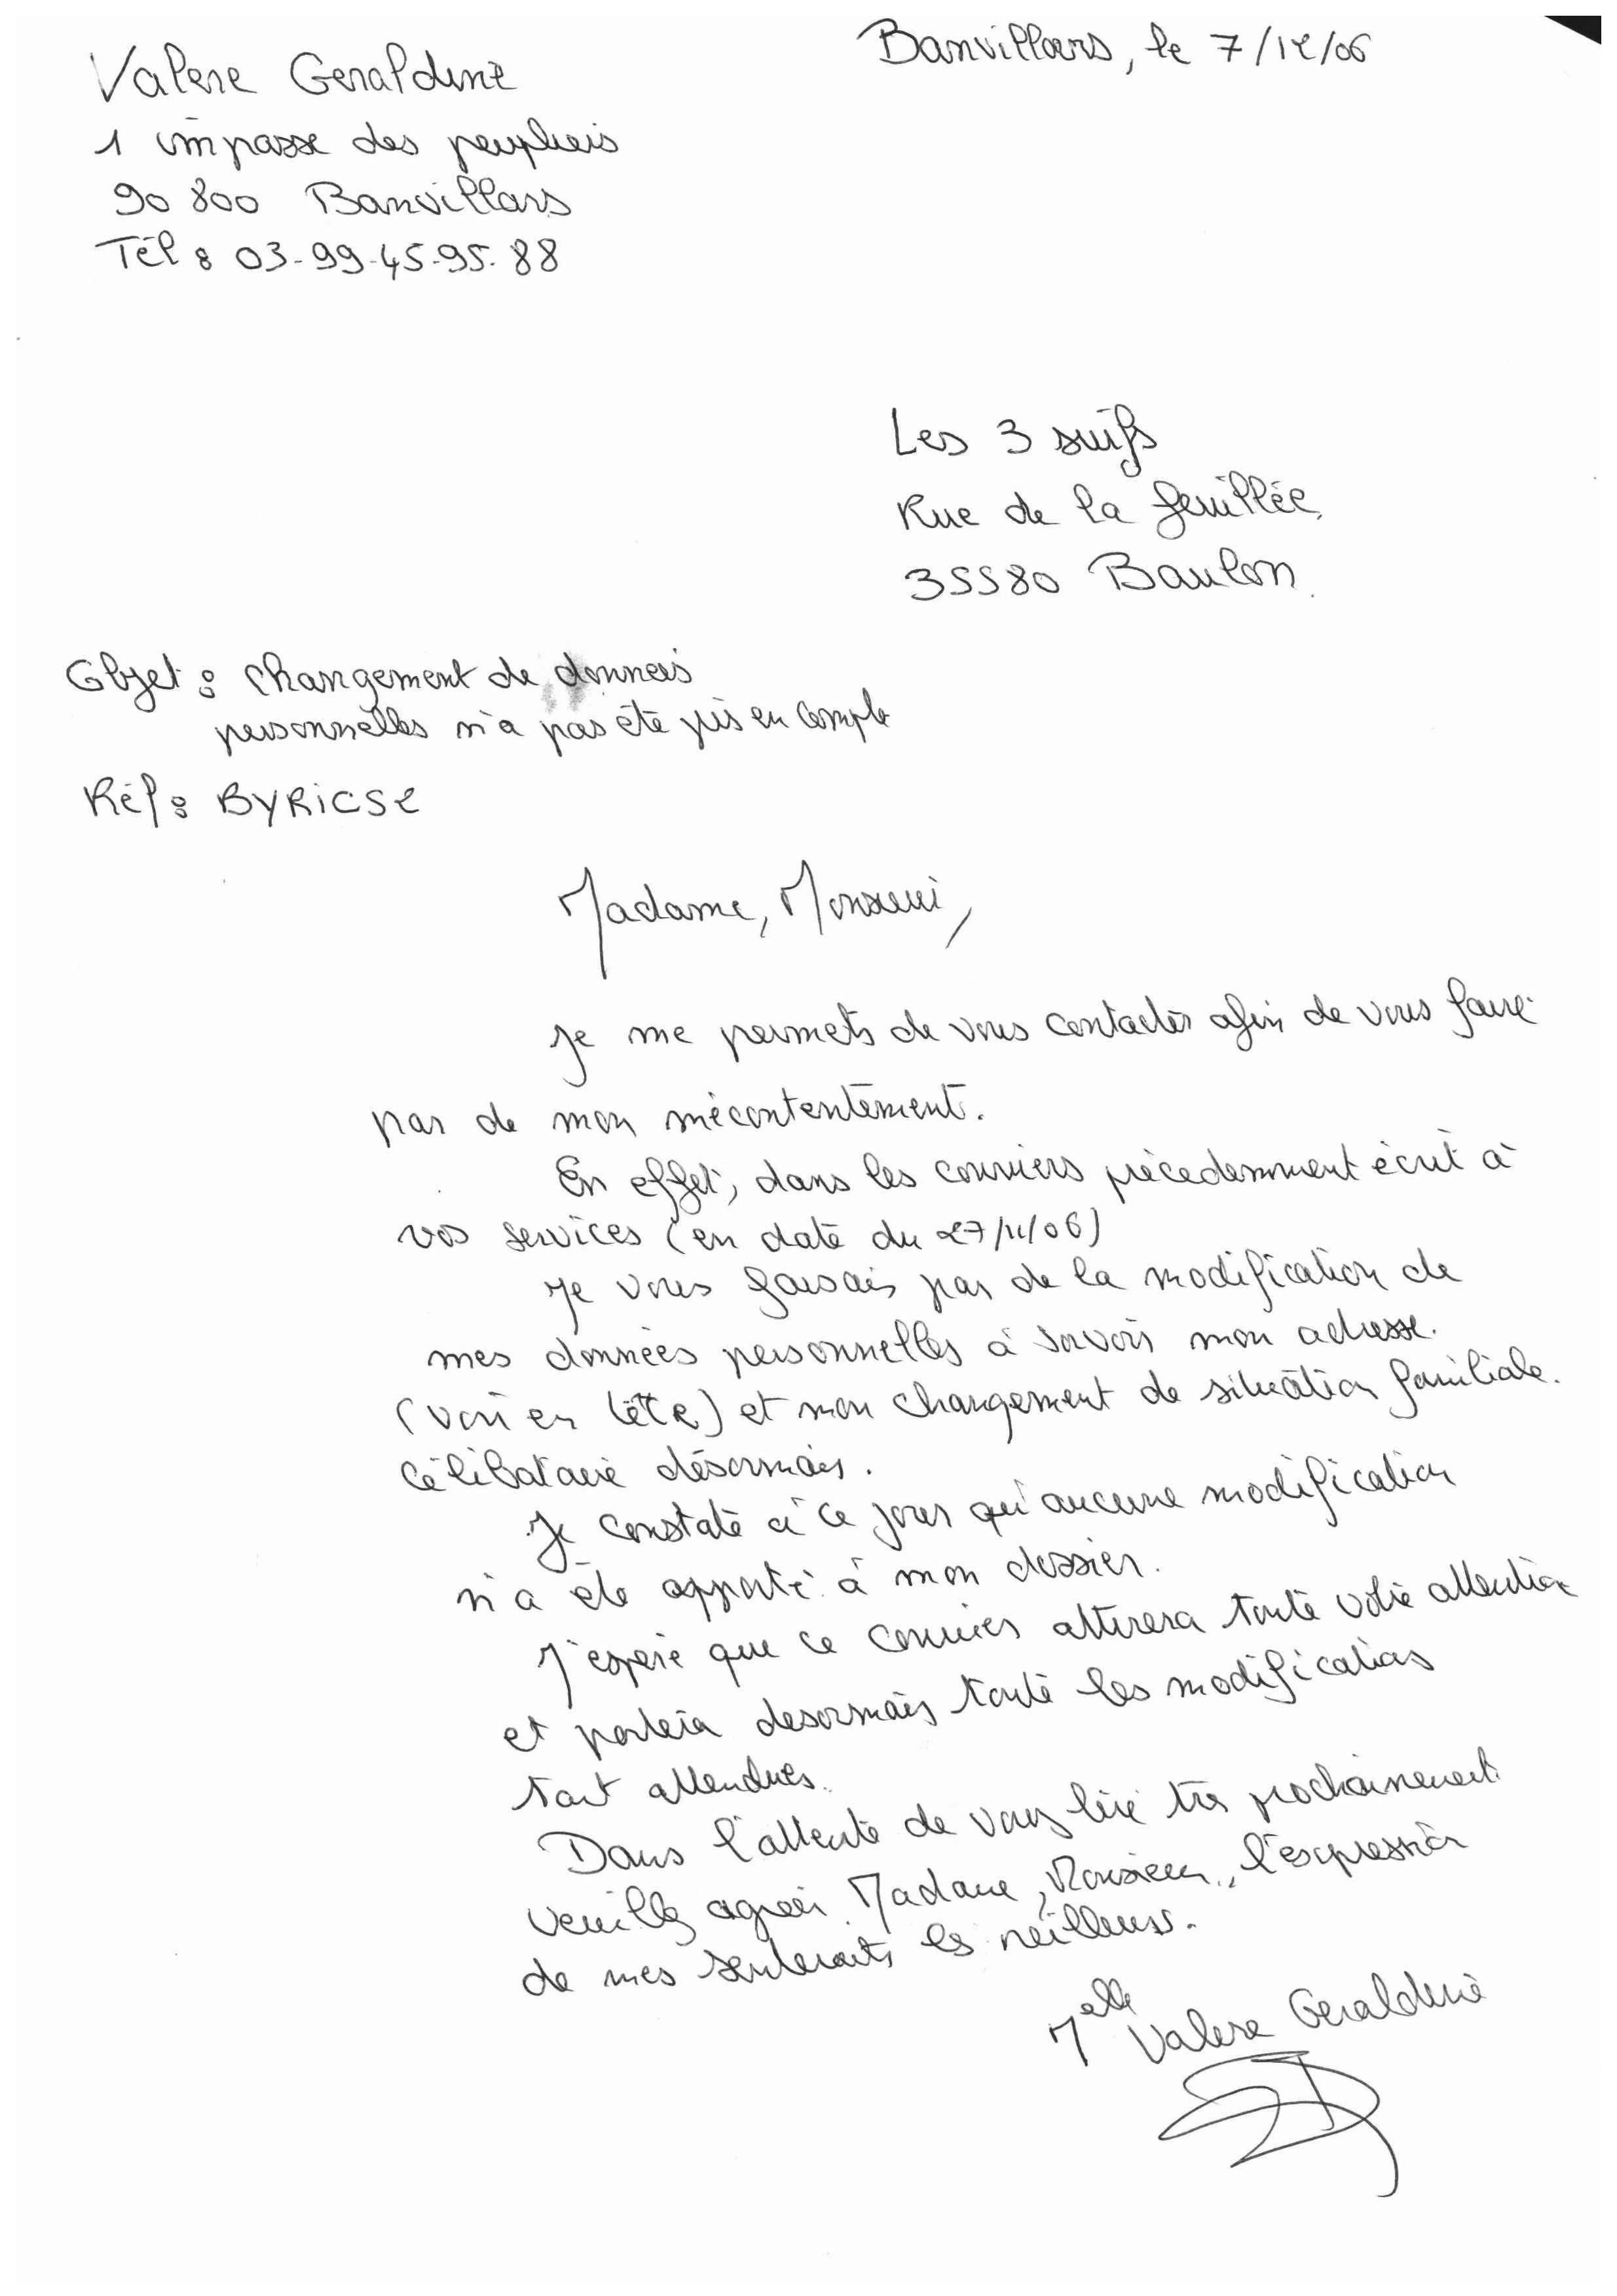 Valere Geraldine
Banvillars, le 7/12/06
1 impasse des peupliers
90 800 Banvillars
Tél : 03-99-45-95-88
Les 3 suifs
Rue de la feuillée
35580 Baulon
Objet : Changement de données
personnelles n'a pas été pris en compte
Réf : BYRICSE
Madame, Monsieur,
Je me permets de vous contacter afin de vous faire
par de mon mécontentement.
En effet, dans les courriers précedemment écrit à
vos services (en date du 27/11/06)
Je vous faisais par de la modification de
mes données personnelles à savoir mon adresse.
(voir en tête) et mon changement de situation familiale.
Célibataire désormais.
Je constate à ce jour qu'aucune modification
n'a été apporté à mon dossier.
J'espere que ce courrier attirera toute votre attention
et portera desormais toute les modifications
tant attendues.
Dans l'attente de vous lire très prochainement
veuillez agréer Madame, Monsieur, l'expression
de mes sentiments les meilleurs.
Melle Valere Geraldine